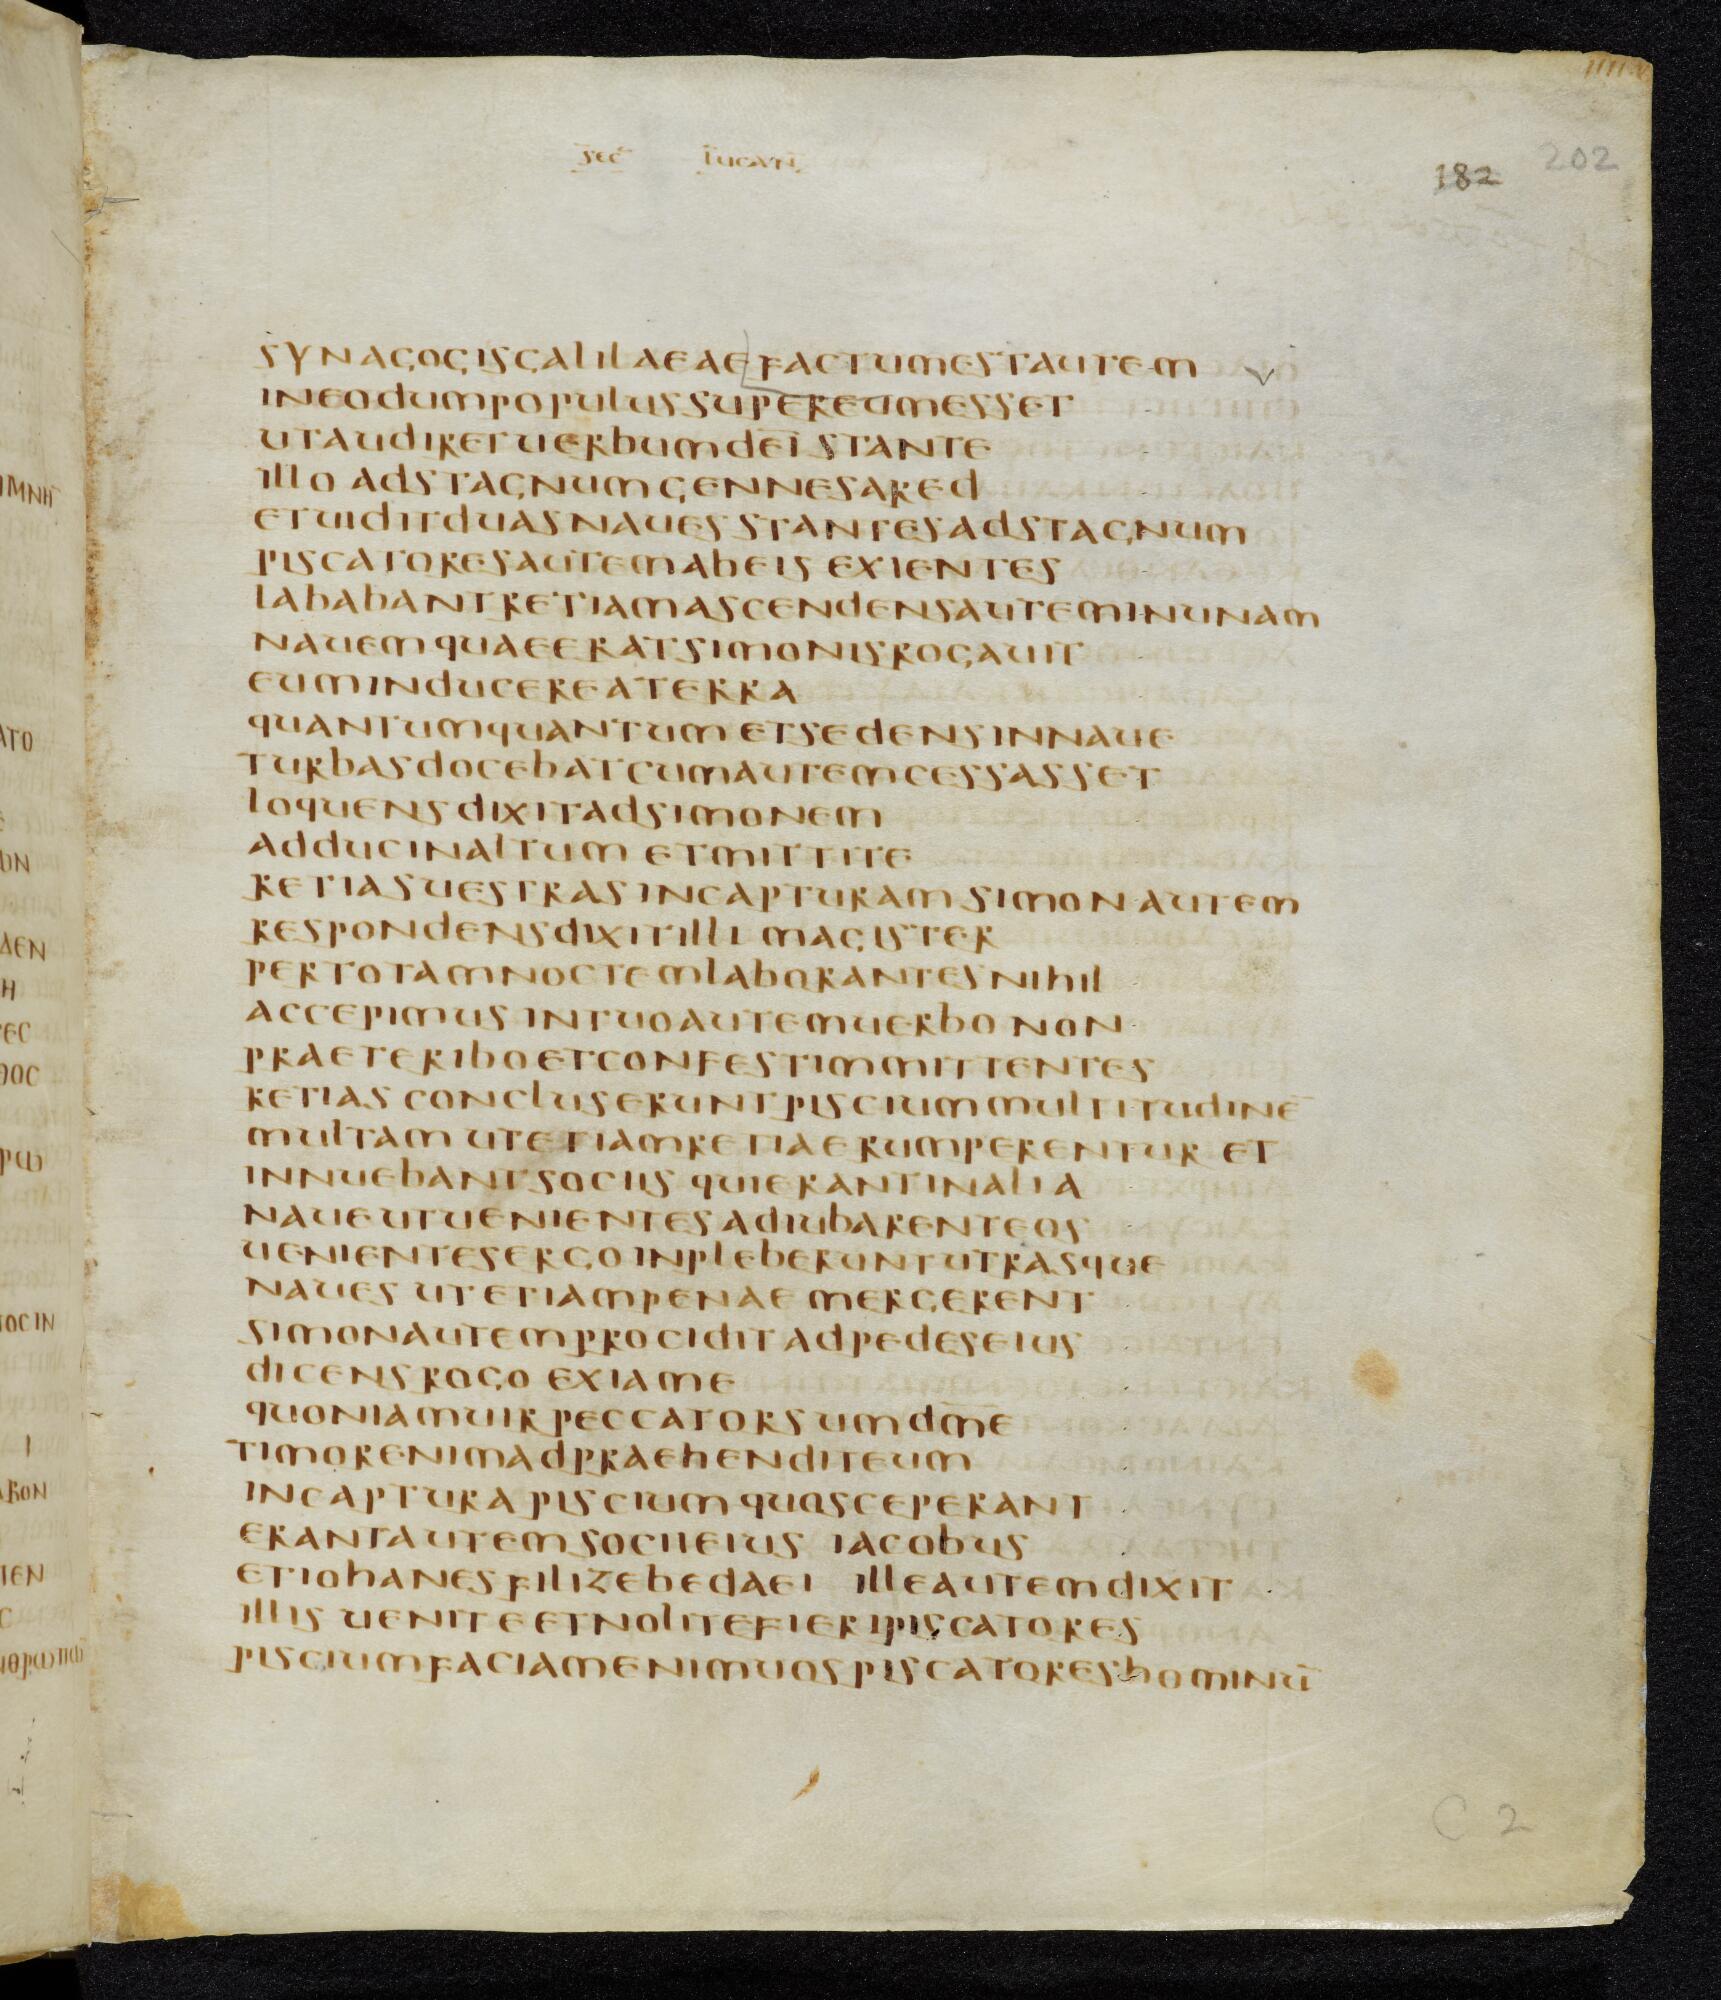 sec lucan
182 202
synagogis galilaeae factum est autem
in eo dum populus super eum esset
ut audiret uerbum dei stante
illo ad stagnum gennesared
et uidit duas naues stantes ad stagnum
piscatores autem ab eis exientes
lababant retiam ascendens autem in unam
nauem quae erat simonis rogauit
eum inducere a terra
quantum quantum et sedens in naue
turbas docebat cum autem cessasset
loquens dixit ad simonem
adduc in altum et mittite
retias uestras in capturam simon autem
respondens dixit illi magister
per totam noctem laborantes nihil
accepimus in tuo autem uerbo non
praeteribo et confestim mittentes
retias concluserunt piscium multitudinē
multam ut etiam retiae rumperentur et
innuebant sociis qui erant in alia
naue ut uenientes adiubarent eos
uenientes ergo inpleberunt utrasque
naues ut etiam penae mergerent
simon autem procidit ad pedes eius
dicens rogo exi a me
quoniam uir peccator sum dm̄e
timor enim adpraehendit eum
in captura piscium quas ceperant
erant autem socii eius iacobus
et iohanes fili zebedaei ille autem dixit
illis uenite et nolite fieri piscatores
piscium faciam enim uos piscatores hominū
C 2